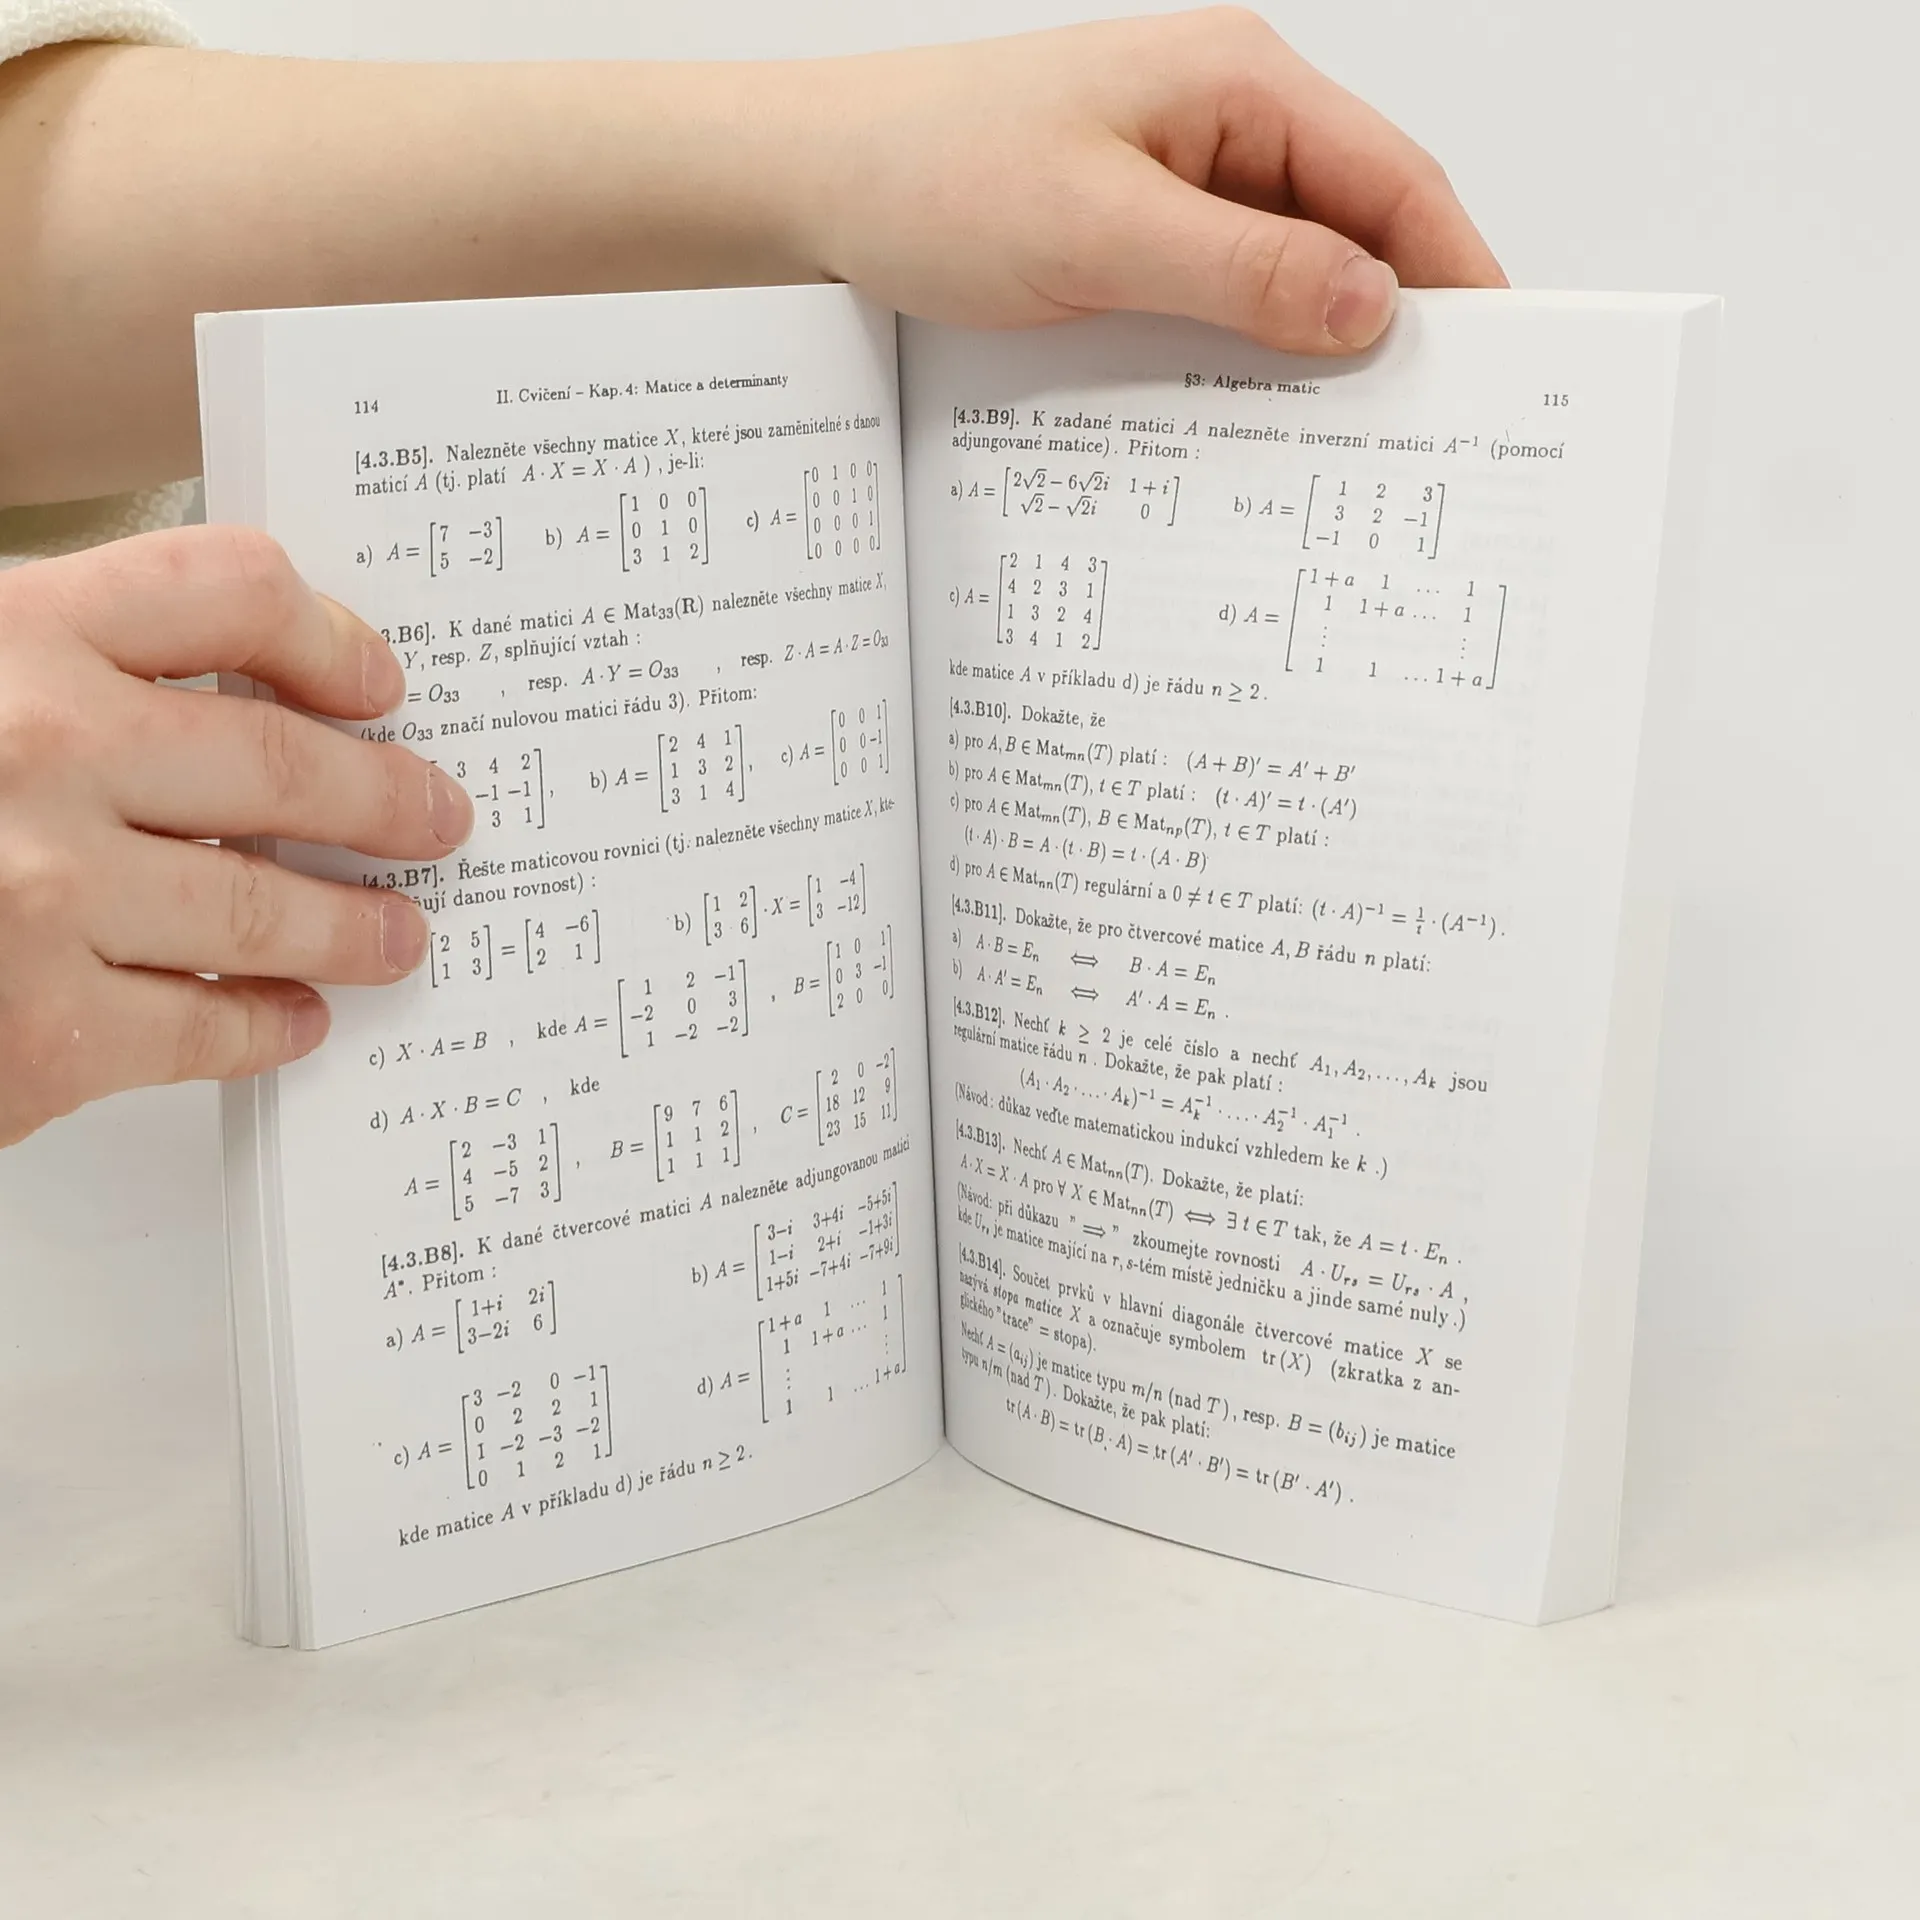 114 II. Cvičení – Kap. 4: Matice a determinanty
[4.3.B5]. Nalezněte všechny matice X, které jsou zaměnitelné s danou
maticí A (tj. platí A · X = X · A ) , je-li:
a) A = [7 −3; 5 −2] b) A = [1 0 0; 0 1 0; 3 1 2] c) A = [0 1 0 0; 0 0 1 0; 0 0 0 1; 0 0 0 0]
3.B6]. K dané matici A ∈ Mat₃₃(R) nalezněte všechny matice X,
Y, resp. Z, splňující vztah :
= O₃₃ , resp. A · Y = O₃₃ , resp. Z · A = A · Z = O₃₃
(kde O₃₃ značí nulovou matici řádu 3). Přitom:
3 4 2; −1 −1; 3 1], b) A = [2 4 1; 1 3 2; 3 1 4], c) A = [0 0 1; 0 0 −1; 0 0 1]
[4.3.B7]. Řešte maticovou rovnici (tj. nalezněte všechny matice X, kte-
ňují danou rovnost) :
[2 5; 1 3] = [4 −6; 2 1] b) [1 2; 3 6] · X = [1 −4; 3 −12]
c) X · A = B , kde A = [1 2 −1; −2 0 3; 1 −2 −2] , B = [1 0 1; 0 3 −1; 2 0 0]
d) A · X · B = C , kde
A = [2 −3 1; 4 −5 2; 5 −7 3] , B = [9 7 6; 1 1 2; 1 1 1] , C = [2 0 −2; 18 12 9; 23 15 11]
[4.3.B8]. K dané čtvercové matici A nalezněte adjungovanou matici
A*. Přitom :
a) A = [1+i 2i; 3−2i 6] b) A = [3−i 3+4i −5+5i; 1−i 2+i −1+3i; 1+5i −7+4i −7+9i]
c) A = [3 −2 0 −1; 0 2 2 1; 1 −2 −3 −2; 0 1 2 1] d) A = [1+a 1 ... 1; 1 1+a ... 1; ⋮ ⋮; 1 1 ... 1+a]
kde matice A v příkladu d) je řádu n ≥ 2.
§3: Algebra matic 115
[4.3.B9]. K zadané matici A nalezněte inverzní matici A⁻¹ (pomocí
adjungované matice). Přitom :
a) A = [2√2 − 6√2i 1 + i; √2 − √2i 0] b) A = [1 2 3; 3 2 −1; −1 0 1]
c) A = [2 1 4 3; 4 2 3 1; 1 3 2 4; 3 4 1 2] d) A = [1+a 1 ... 1; 1 1+a ... 1; ⋮ ⋮; 1 1 ... 1+a]
kde matice A v příkladu d) je řádu n ≥ 2.
[4.3.B10]. Dokažte, že
a) pro A, B ∈ Matₘₙ(T) platí : (A + B)′ = A′ + B′
b) pro A ∈ Matₘₙ(T), t ∈ T platí : (t · A)′ = t · (A′)
c) pro A ∈ Matₘₙ(T), B ∈ Matₙₚ(T), t ∈ T platí :
(t · A) · B = A · (t · B) = t · (A · B)
d) pro A ∈ Matₙₙ(T) regulární a 0 ≠ t ∈ T platí: (t · A)⁻¹ = 1/t · (A⁻¹).
[4.3.B11]. Dokažte, že pro čtvercové matice A, B řádu n platí:
a) A · B = Eₙ ⟺ B · A = Eₙ
b) A · A′ = Eₙ ⟺ A′ · A = Eₙ .
[4.3.B12]. Nechť k ≥ 2 je celé číslo a nechť A₁, A₂, ..., Aₖ jsou
regulární matice řádu n . Dokažte, že pak platí :
(A₁ · A₂ · ... · Aₖ)⁻¹ = Aₖ⁻¹ · ... · A₂⁻¹ · A₁⁻¹ .
(Návod: důkaz veďte matematickou indukcí vzhledem ke k .)
[4.3.B13]. Nechť A ∈ Matₙₙ(T). Dokažte, že platí:
A · X = X · A pro ∀ X ∈ Matₙₙ(T) ⟺ ∃ t ∈ T tak, že A = t · Eₙ .
(Návod: při důkazu " ⟹ " zkoumejte rovnosti A · Uᵣₛ = Uᵣₛ · A ,
kde Uᵣₛ je matice mající na r, s-tém místě jedničku a jinde samé nuly .)
[4.3.B14]. Součet prvků v hlavní diagonále čtvercové matice X se
nazývá stopa matice X a označuje symbolem tr (X) (zkratka z an-
glického "trace" = stopa).
Nechť A = (aᵢⱼ) je matice typu m/n (nad T), resp. B = (bᵢⱼ) je matice
typu n/m (nad T). Dokažte, že pak platí:
tr (A · B) = tr (B · A) = tr (A′ · B′) = tr (B′ · A′) .